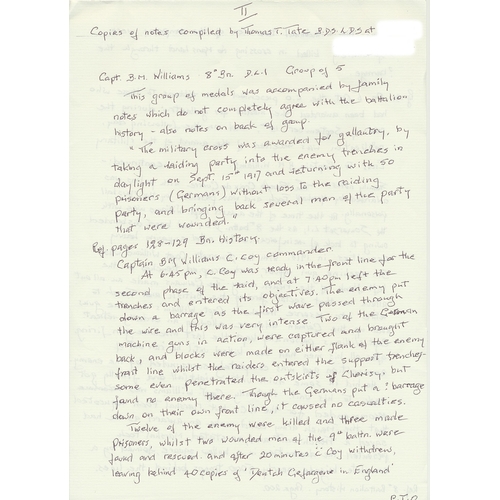 II
Copies of notes compiled by Thomas T. Tate B.D.S. L.D.S at
Capt. B.M. Williams 8th Bn. D.L.I Group of 5
This group of medals was accompanied by family
notes which do not completely agree with the battalion
history - also notes on back of group.
"The military cross was awarded for gallantry, by
taking a raiding party into the enemy trenches in
daylight on Sept. 15th 1917 and returning with 50
prisoners (Germans) without loss to the raiding
party, and bringing back several men of the party
that were wounded."
Ref. pages 128-129 Bn. History.
Captain BM Williams C. Coy commander.
At 6.45pm, C. Coy was ready in the front line for the
second phase of the raid, and at 7.40pm left the
trenches and entered its objectives. The enemy put
down a barrage as the first wave passed through
the wire and this was very intense Two of the German
machine guns in action, were captured and brought
back, and blocks were made on either flank of the enemy
front line whilst the raiders entered the support trenches-
some even penetrated the outskirts of Cherisy, but
found no enemy there. Though the Germans put a ? barrage
down on their own front line, it caused no casualties.
Twelve of the enemy were killed and three made
prisoners, whilst two wounded men of the 9th battn. were
found and rescued. and after 20 minutes C Coy withdrew,
leaving behind 40 copies of 'Deutch Gefangene in England'
P.T.O